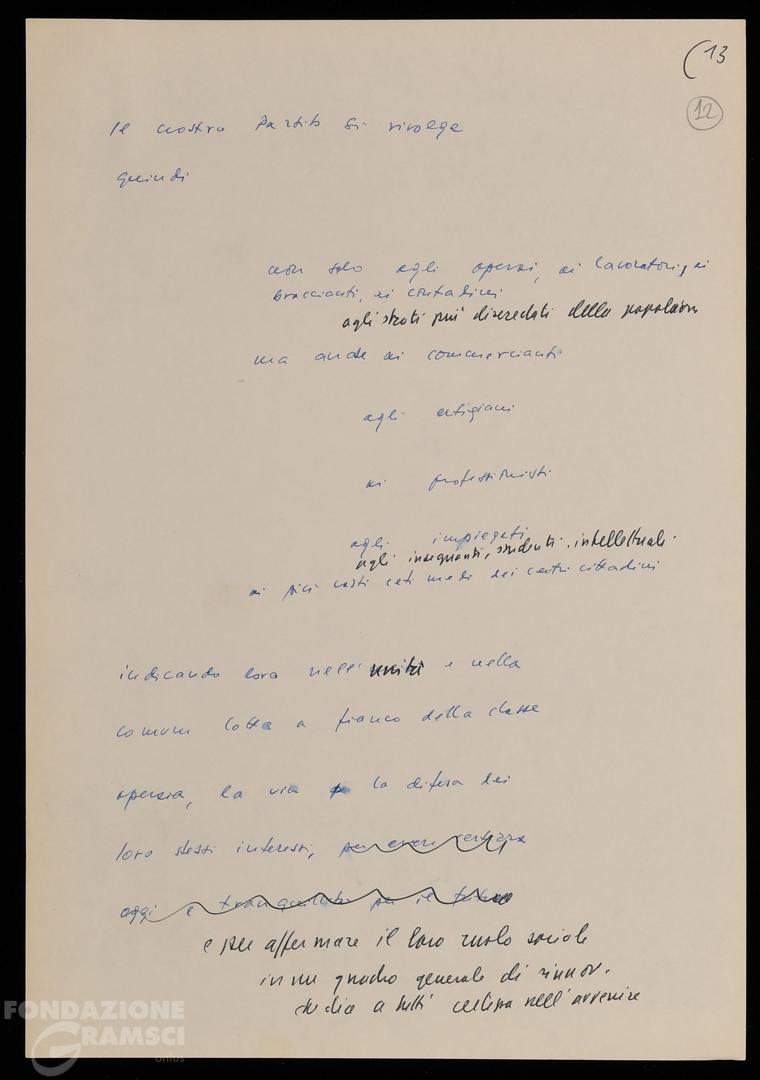 (13
12
Il nostro Partito si rivolge
quindi
non solo agli operai, ai lavoratori, ai
braccianti, ai contadini
agli strati più diseredati della popolazion
ma anche ai commercianti
agli artigiani
ai professionisti
agli impiegati
agli insegnanti, studenti, intellettuali.
ai più vasti ceti medi dei centri cittadini
indicando loro nell'unità e nella
comun lotta a fianco della classe
operaia, la via la difesa dei
loro stessi interessi, per avere certezza
oggi e tranquillità per il futuro
e per affermare il loro ruolo sociale
in un quadro generale di rinnov.
che dia a tutti certezza nell'avvenire
FONDAZIONE
GRAMSCI
onlus